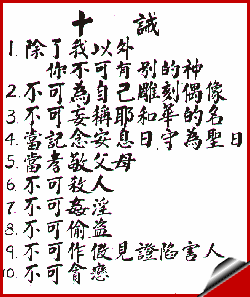 十 誡
1. 除了我以外
你不可有别的神
2. 不可為自己雕刻偶像
3. 不可妄稱耶和華的名
4. 當記念安息日守為聖日
5. 當孝敬父母
6. 不可殺人
7. 不可姦淫
8. 不可偷盜
9. 不可作假見證陷害人
10. 不可貪戀